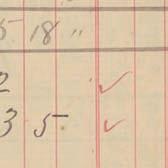 5 18 "
2 ✓
3 5 ✓